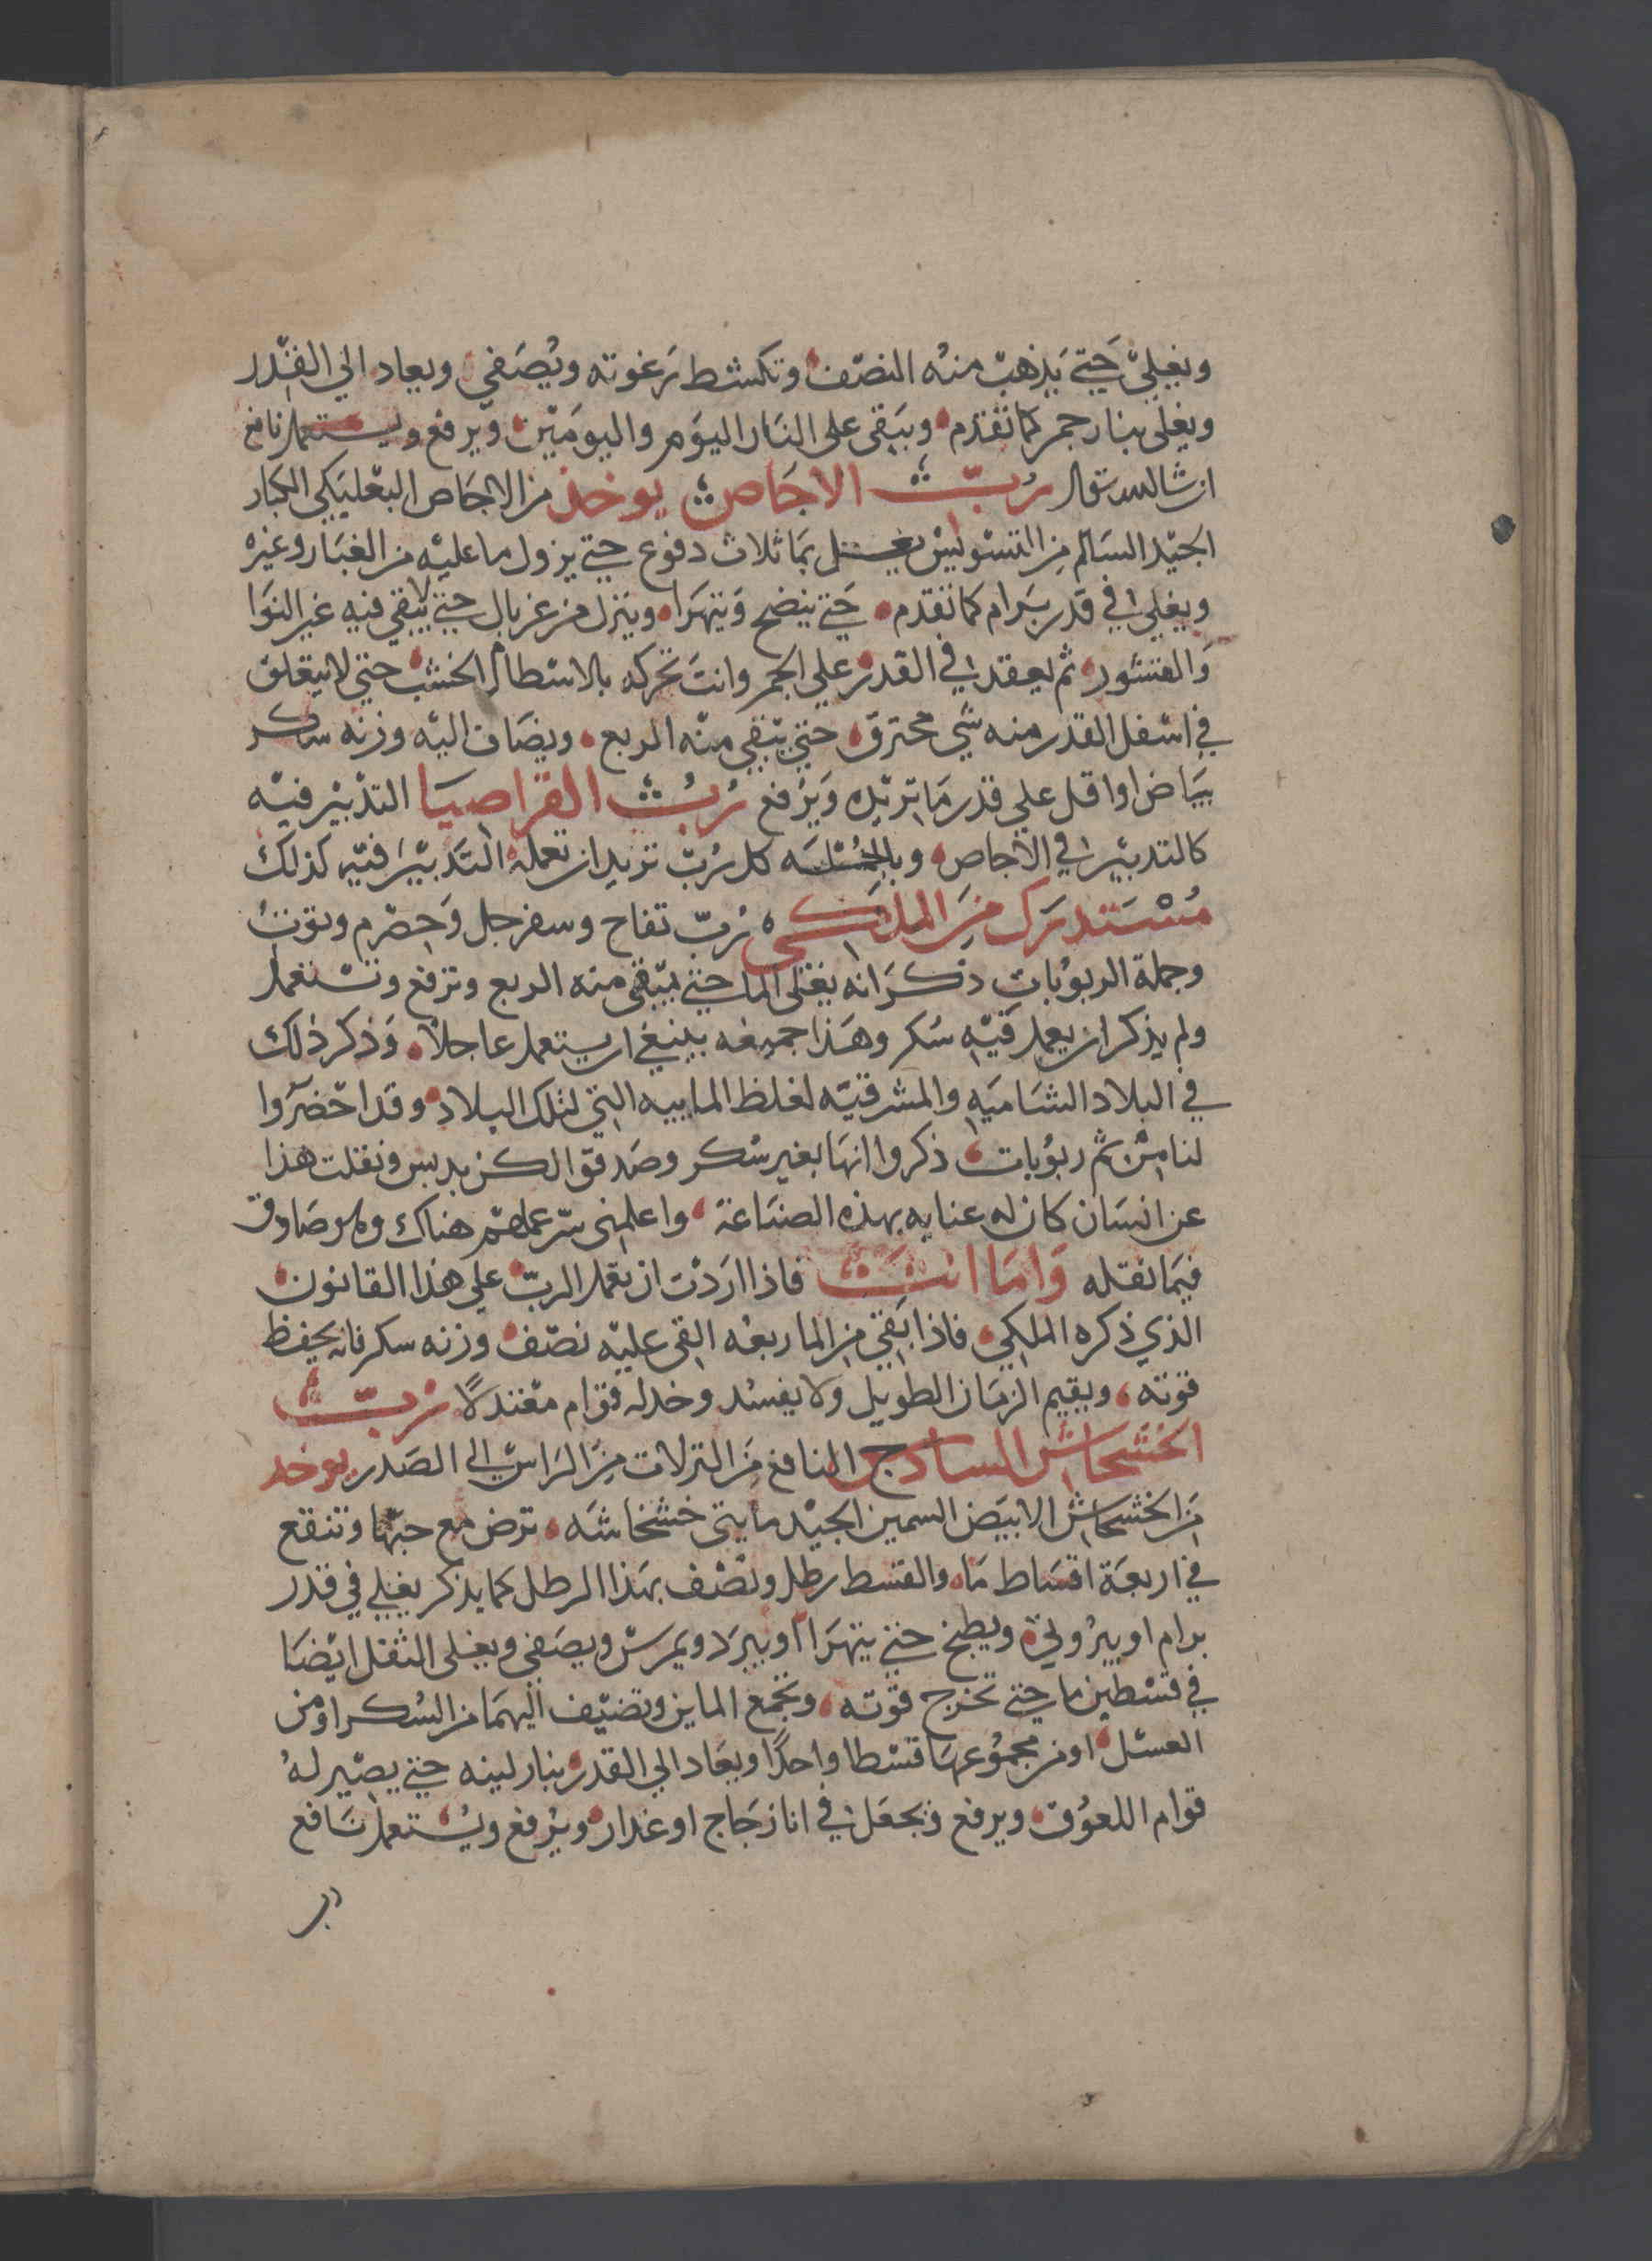 ويغلي حتي يذهب منه النصف وتكشط رغوته ويصفي ويعاد الي القدر
ويغلى بنار جمر كما تقدم ويبقى على النار اليوم واليومين ويرفع ويستعمل نافع
ان شا الله تعالى رُبّ الاجاص يوخذ من الاجاص البعلبكي الكبار
الجيد السالم من التسويس يغسل بما ثلاث دفوع حتي يزول ما عليه من الغبار وغيره
ويغلي في قدر برام كما تقدم حتي ينضج ويتهرا وينزل من غربال حتي لا يبقي فيه غير النوا
والقشور ثم يعقد في القدر علي الجمر وانت تحركه بالاسطام الخشب حتي لا يتعلق
في اسفل القدر منه شي محترق حتي يبقي منه الربع ويضاف اليه وزنه سكر
بياض او اقل علي قدر ما تريده ويرفع رُبّ القراصيا التدبير فيه
كالتدبير في الاجاص وبالجملة كل رُبّ تريد ان تعمله التدبير فيه كذلك
مُسْتدرك من الملكي رُبّ تفاح وسفرجل وحصرم وتوت
وجملة الربوبات ذكر انه يغلى الما حتي يبقى منه الربع وترفع وتستعمل
ولم يذكر ان يعمل فيه سكر وهذا جميعه ينبغي ان يستعمل عاجلاً وذكر ذلك
في البلاد الشامية والمشرقية لغلظ الماييه التي لتلك البلاد وقد احضروا
لنا من ثم ربوبات ذكروا انها بغير سكر وصدقوا لكن بدبس ونقلت هذا
عن انسان كان له عنايه بهذه الصناعة واعلمني سر عملهم هناك وهو صادق
فيما نقله واما انت فاذا اردت ان تعمل الربّ علي هذا القانون
الذي ذكره الملكي فاذا بقي من الما ربعه القى عليه نصف وزنه سكر فانه يحفظ
قوته ويقيم الزمان الطويل ولا يفسد وخد له قوام معتدلاً رُبّ
الخشخاش الساذج النافع من النزلات من الراس الى الصدر يوخد
من الخشخاش الابيض السمين الجيد مايتي خشخاشه ترض مع حبها وتنقع
في اربعة اقساط ما والقسط رطل ونصف بهذا الرطل كما يذكر يغلي في قدر
برام او ويطبخ حتي يتهرا ويبرد ويمرس ويصفي ويغلى الثفل ايضا
في قسطين ما حتي تخرج قوته وتجمع الماين وتضيف اليهما من السكر او من
العسل او من مجموعهما قسطا واحدًا ويعاد الي القدر بنار لينه حتي يصير له
قوام اللعوق ويرفع ويجعل في انا زجاج او غدار ويرفع ويستعمل نافع